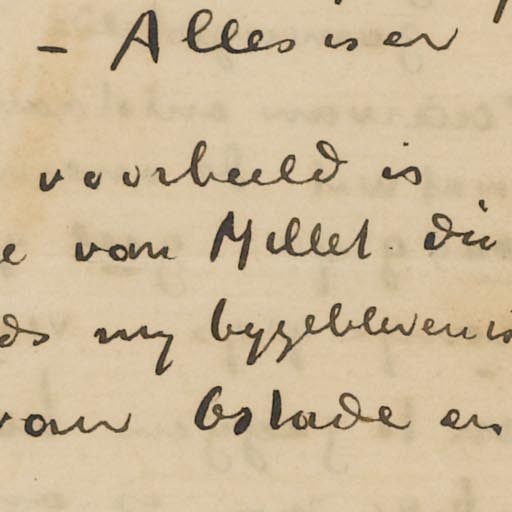 - Alles is er
voorbeeld is
e van Millet die
ds my bygebleven is
van Ostade en